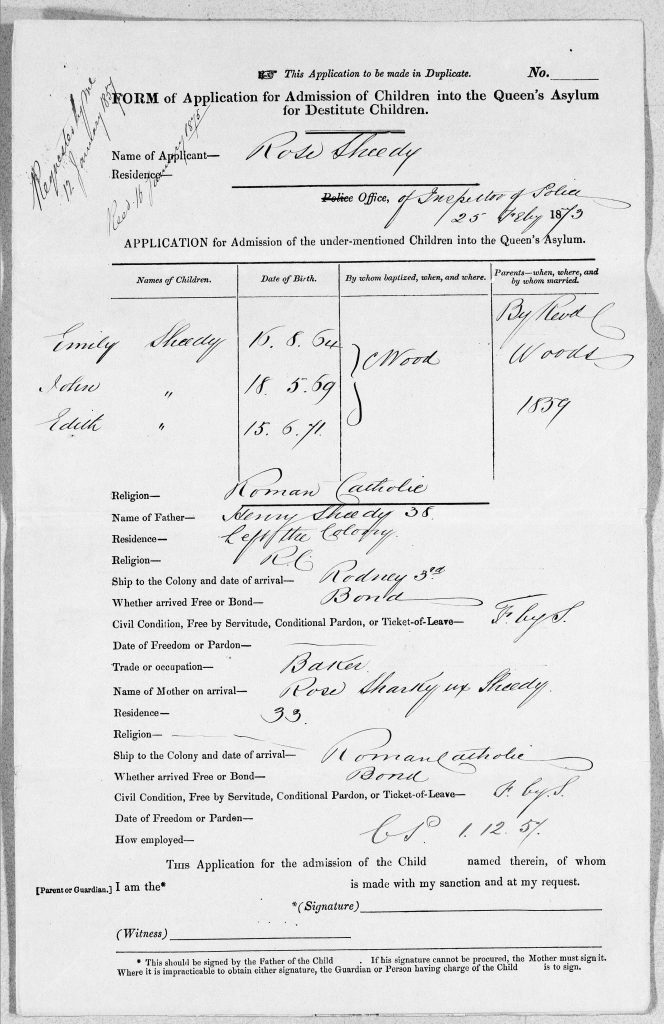 This Application to be made in Duplicate. No.
FORM of Application for Admission of Children into the Queen's Asylum
for Destitute Children.
Requested by me
12 January 1857
Recd. 16 January 1876
Name of Applicant— Rose Sheedy
Residence—
Police Office, of Inspector of Police
25 Feby 1873
APPLICATION for Admission of the under-mentioned Children into the Queen's Asylum.
Names of Children. Date of Birth. By whom baptized, when, and where. Parents—when, where, and by whom married.
By Revd
Emily Sheedy 16. 8. 64 Wood Woods
John " 18. 5. 69 1859
Edith " 15. 6. 71.
Religion— Roman Catholic
Name of Father— Henry Sheedy 38
Residence— Left the Colony.
Religion— R.C.
Ship to the Colony and date of arrival— Rodney 3rd
Whether arrived Free or Bond— Bond
Civil Condition, Free by Servitude, Conditional Pardon, or Ticket-of-Leave— F. by S.
Date of Freedom or Pardon—
Trade or occupation— Baker
Name of Mother on arrival— Rose Sharky ux Sheedy.
Residence— 33
Religion—
Ship to the Colony and date of arrival— Roman Catholic
Whether arrived Free or Bond— Bond
Civil Condition, Free by Servitude, Conditional Pardon, or Ticket-of-Leave— F. by. S.
Date of Freedom or Pardon—
How employed— 1. 12. 57.
THIS Application for the admission of the Child named therein, of whom
[Parent or Guardian.] I am the* is made with my sanction and at my request.
*(Signature)
(Witness)
* This should be signed by the Father of the Child . If his signature cannot be procured, the Mother must sign it.
Where it is impracticable to obtain either signature, the Guardian or Person having charge of the Child is to sign.